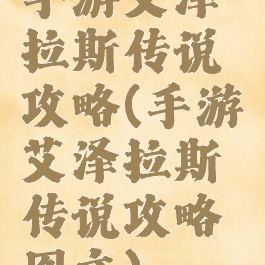 手游艾泽
拉斯传说
攻略(手游
艾泽拉斯
传说攻略
图文)